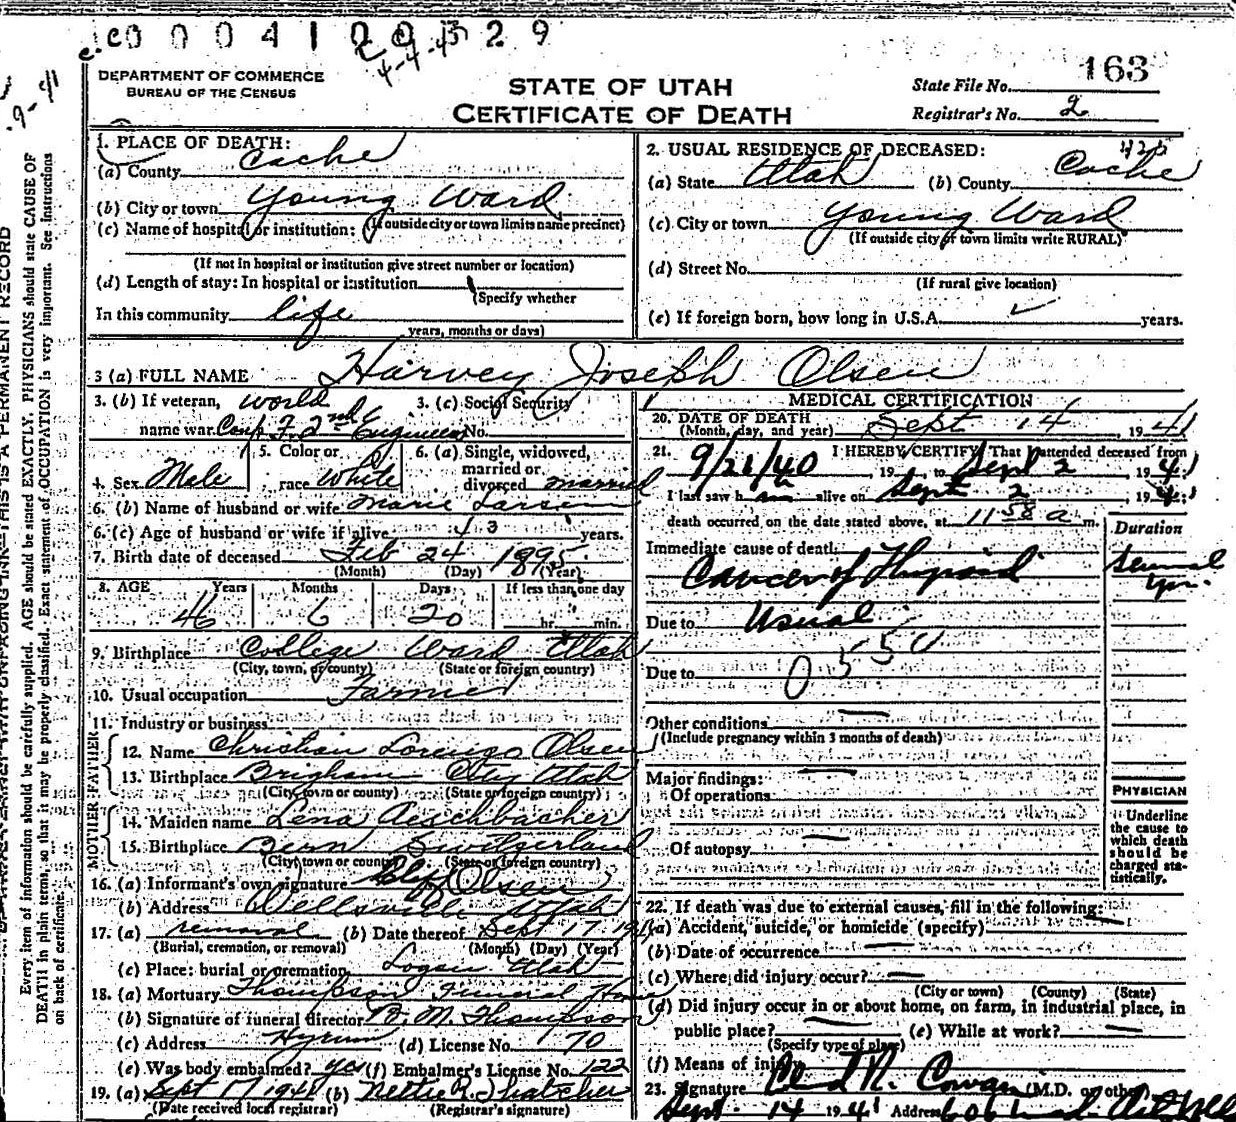 c000410013 29
C-4-4-4
DEPARTMENT OF COMMERCE
BUREAU OF THE CENSUS
STATE OF UTAH
CERTIFICATE OF DEATH
State File No. 163
Registrar's No. 2
1. PLACE OF DEATH:
(a) County Cache
(b) City or town Young Ward
(If outside city or town limits name precinct)
(c) Name of hospital or institution:
(If not in hospital or institution give street number or location)
(d) Length of stay: In hospital or institution
(Specify whether
In this community life
years, months or days)
2. USUAL RESIDENCE OF DECEASED:
(a) State Utah (b) County Cache
(c) City or town Young Ward
(If outside city or town limits write RURAL)
(d) Street No.
(If rural give location)
(e) If foreign born, how long in U.S.A. years.
3 (a) FULL NAME Harvey Joseph Olsen
3. (b) If veteran, World
name war. Comp F. 2nd Engineers
3. (c) Social Security
No.
4. Sex Male
5. Color or
race White
6. (a) Single, widowed,
married or
divorced married
6. (b) Name of husband or wife Marie Larsen
6. (c) Age of husband or wife if alive 43 years.
7. Birth date of deceased Feb 24 1895
(Month) (Day) (Year)
8. AGE Years Months Days If less than one day
46 6 20 hr. min.
9. Birthplace College Ward Utah
(City, town, or county) (State or foreign country)
10. Usual occupation Farmer
11. Industry or business
FATHER
12. Name Christian Lorenzo Olsen
13. Birthplace Brigham City Utah
(City, town or county) (State or foreign country)
MOTHER
14. Maiden name Lena Aeschbacher
15. Birthplace Bern Switzerland
(City, town or county) (State or foreign country)
16. (a) Informant's own signature Olsen
(b) Address Wellsville Utah
17. (a) removal (b) Date thereof Sept 17 1941
(Burial, cremation, or removal) (Month) (Day) (Year)
(c) Place: burial or cremation Logan Utah
18. (a) Mortuary Thompson Funeral Home
(b) Signature of funeral director B. M. Thompson
(c) Address Hyrum (d) License No. 70
(e) Was body embalmed? yes (f) Embalmer's License No. 122
19. (a) Sept 17 1941 (b) Nettie R. Thatcher
(Date received local registrar) (Registrar's signature)
MEDICAL CERTIFICATION
20. DATE OF DEATH
(Month, day, and year) Sept 14, 1941
21. I HEREBY CERTIFY, That I attended deceased from
9/21/40 19 to Sept 2 1941
I last saw him alive on Sept 2, 1941
death occurred on the date stated above, at 11 58 a m.
Duration
Immediate cause of death
Cancer of Thyroid Several yrs.
Due to Usual
Due to 0550
Other conditions
(Include pregnancy within 3 months of death)
Major findings:
Of operations
Of autopsy
PHYSICIAN
Underline
the cause to
which death
should be
charged sta-
tistically.
22. If death was due to external causes, fill in the following:
(a) Accident, suicide, or homicide (specify)
(b) Date of occurrence
(c) Where did injury occur?
(City or town) (County) (State)
(d) Did injury occur in or about home, on farm, in industrial place, in
public place? (e) While at work?
(Specify type of place)
(f) Means of injury
23. Signature R. Cowan (M.D. or other)
Sept. 14 1941 Address
Every item of information should be carefully supplied. AGE should be stated EXACTLY. PHYSICIANS should state CAUSE OF
DEATH in plain terms, so that it may be properly classified. Exact statement of OCCUPATION is very important. See instructions
on back of certificate.